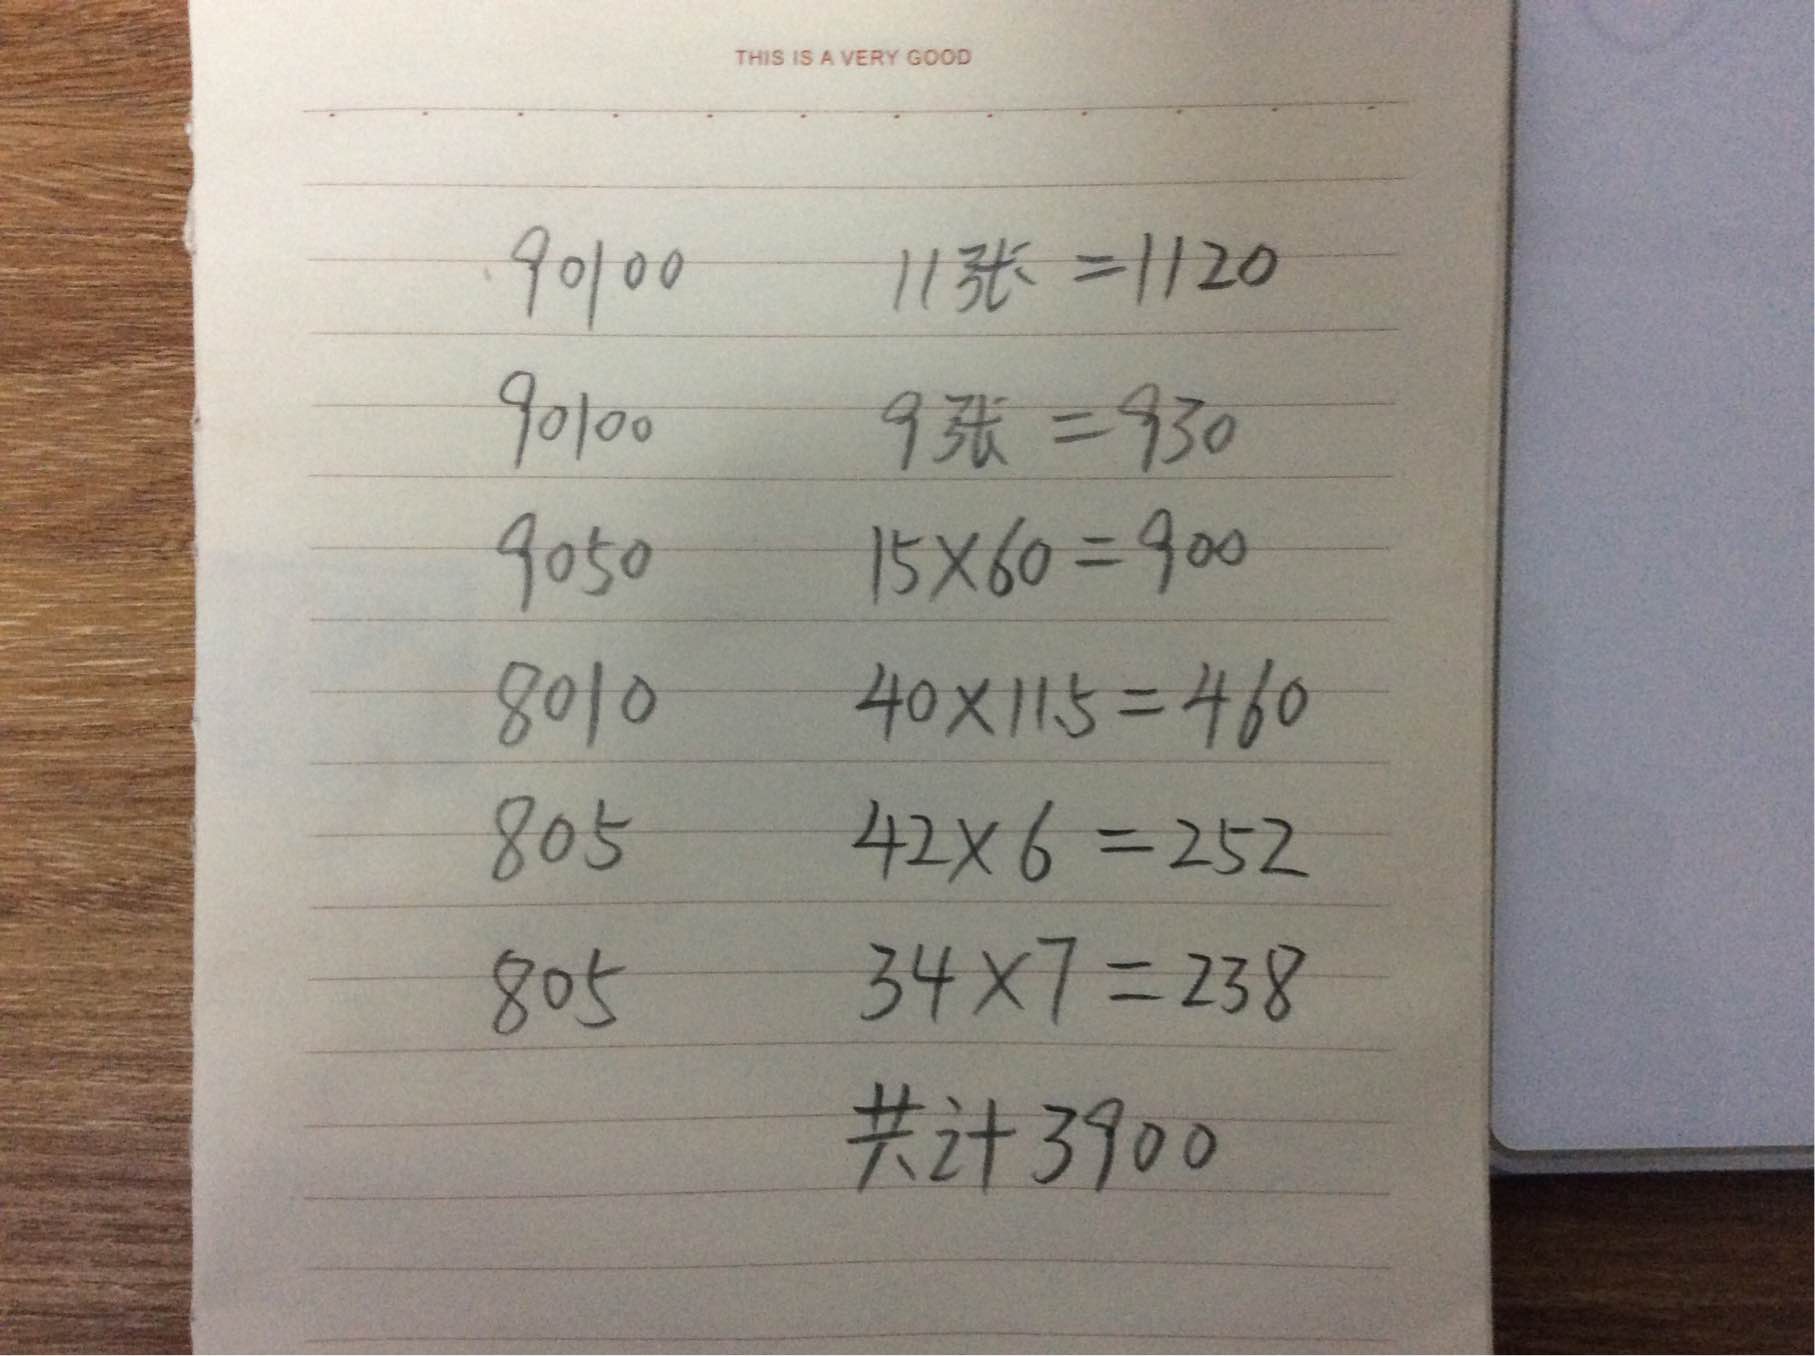 THIS IS A VERY GOOD
90100 11张 =1120
90100 9张 =930
9050 15×60=900
8010 40×11.5=460
805 42×6 =252
805 34×7=238
共计3900